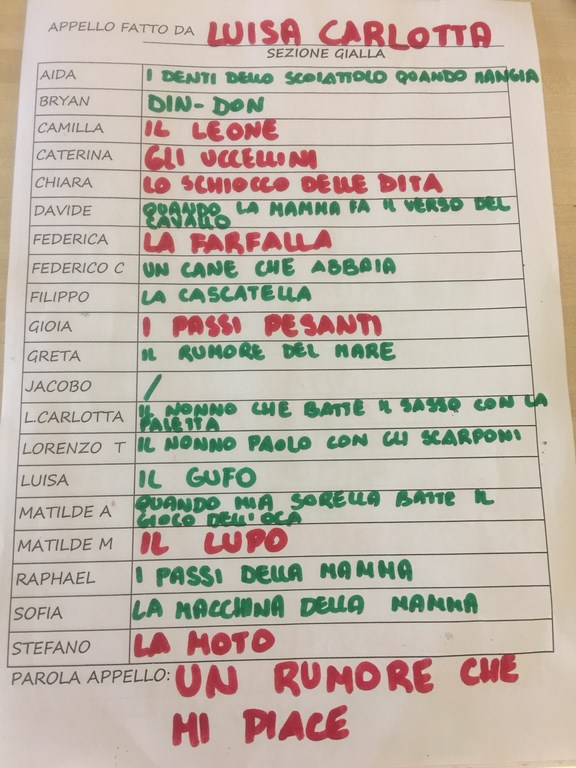 APPELLO FATTO DA LUISA CARLOTTA
SEZIONE GIALLA
AIDA I DENTI DELLO SCOIATTOLO QUANDO MANGIA
BRYAN DIN-DON
CAMILLA IL LEONE
CATERINA GLI UCCELLINI
CHIARA LO SCHIOCCO DELLE DITA
DAVIDE QUANDO LA MAMMA FA IL VERSO DEL
CAVALLO
FEDERICA LA FARFALLA
FEDERICO C UN CANE CHE ABBAIA
FILIPPO LA CASCATELLA
GIOIA I PASSI PESANTI
GRETA IL RUMORE DEL MARE
JACOBO /
L.CARLOTTA IL NONNO CHE BATTE IL SASSO CON LA
PALETTA
LORENZO T IL NONNO PAOLO CON GLI SCARPONI
LUISA IL GUFO
MATILDE A QUANDO MIA SORELLA BATTE IL
GIOCO DELL'OCA
MATILDE M IL LUPO
RAPHAEL I PASSI DELLA MAMMA
SOFIA LA MACCHINA DELLA MAMMA
STEFANO LA MOTO
PAROLA APPELLO: UN RUMORE CHE
MI PIACE